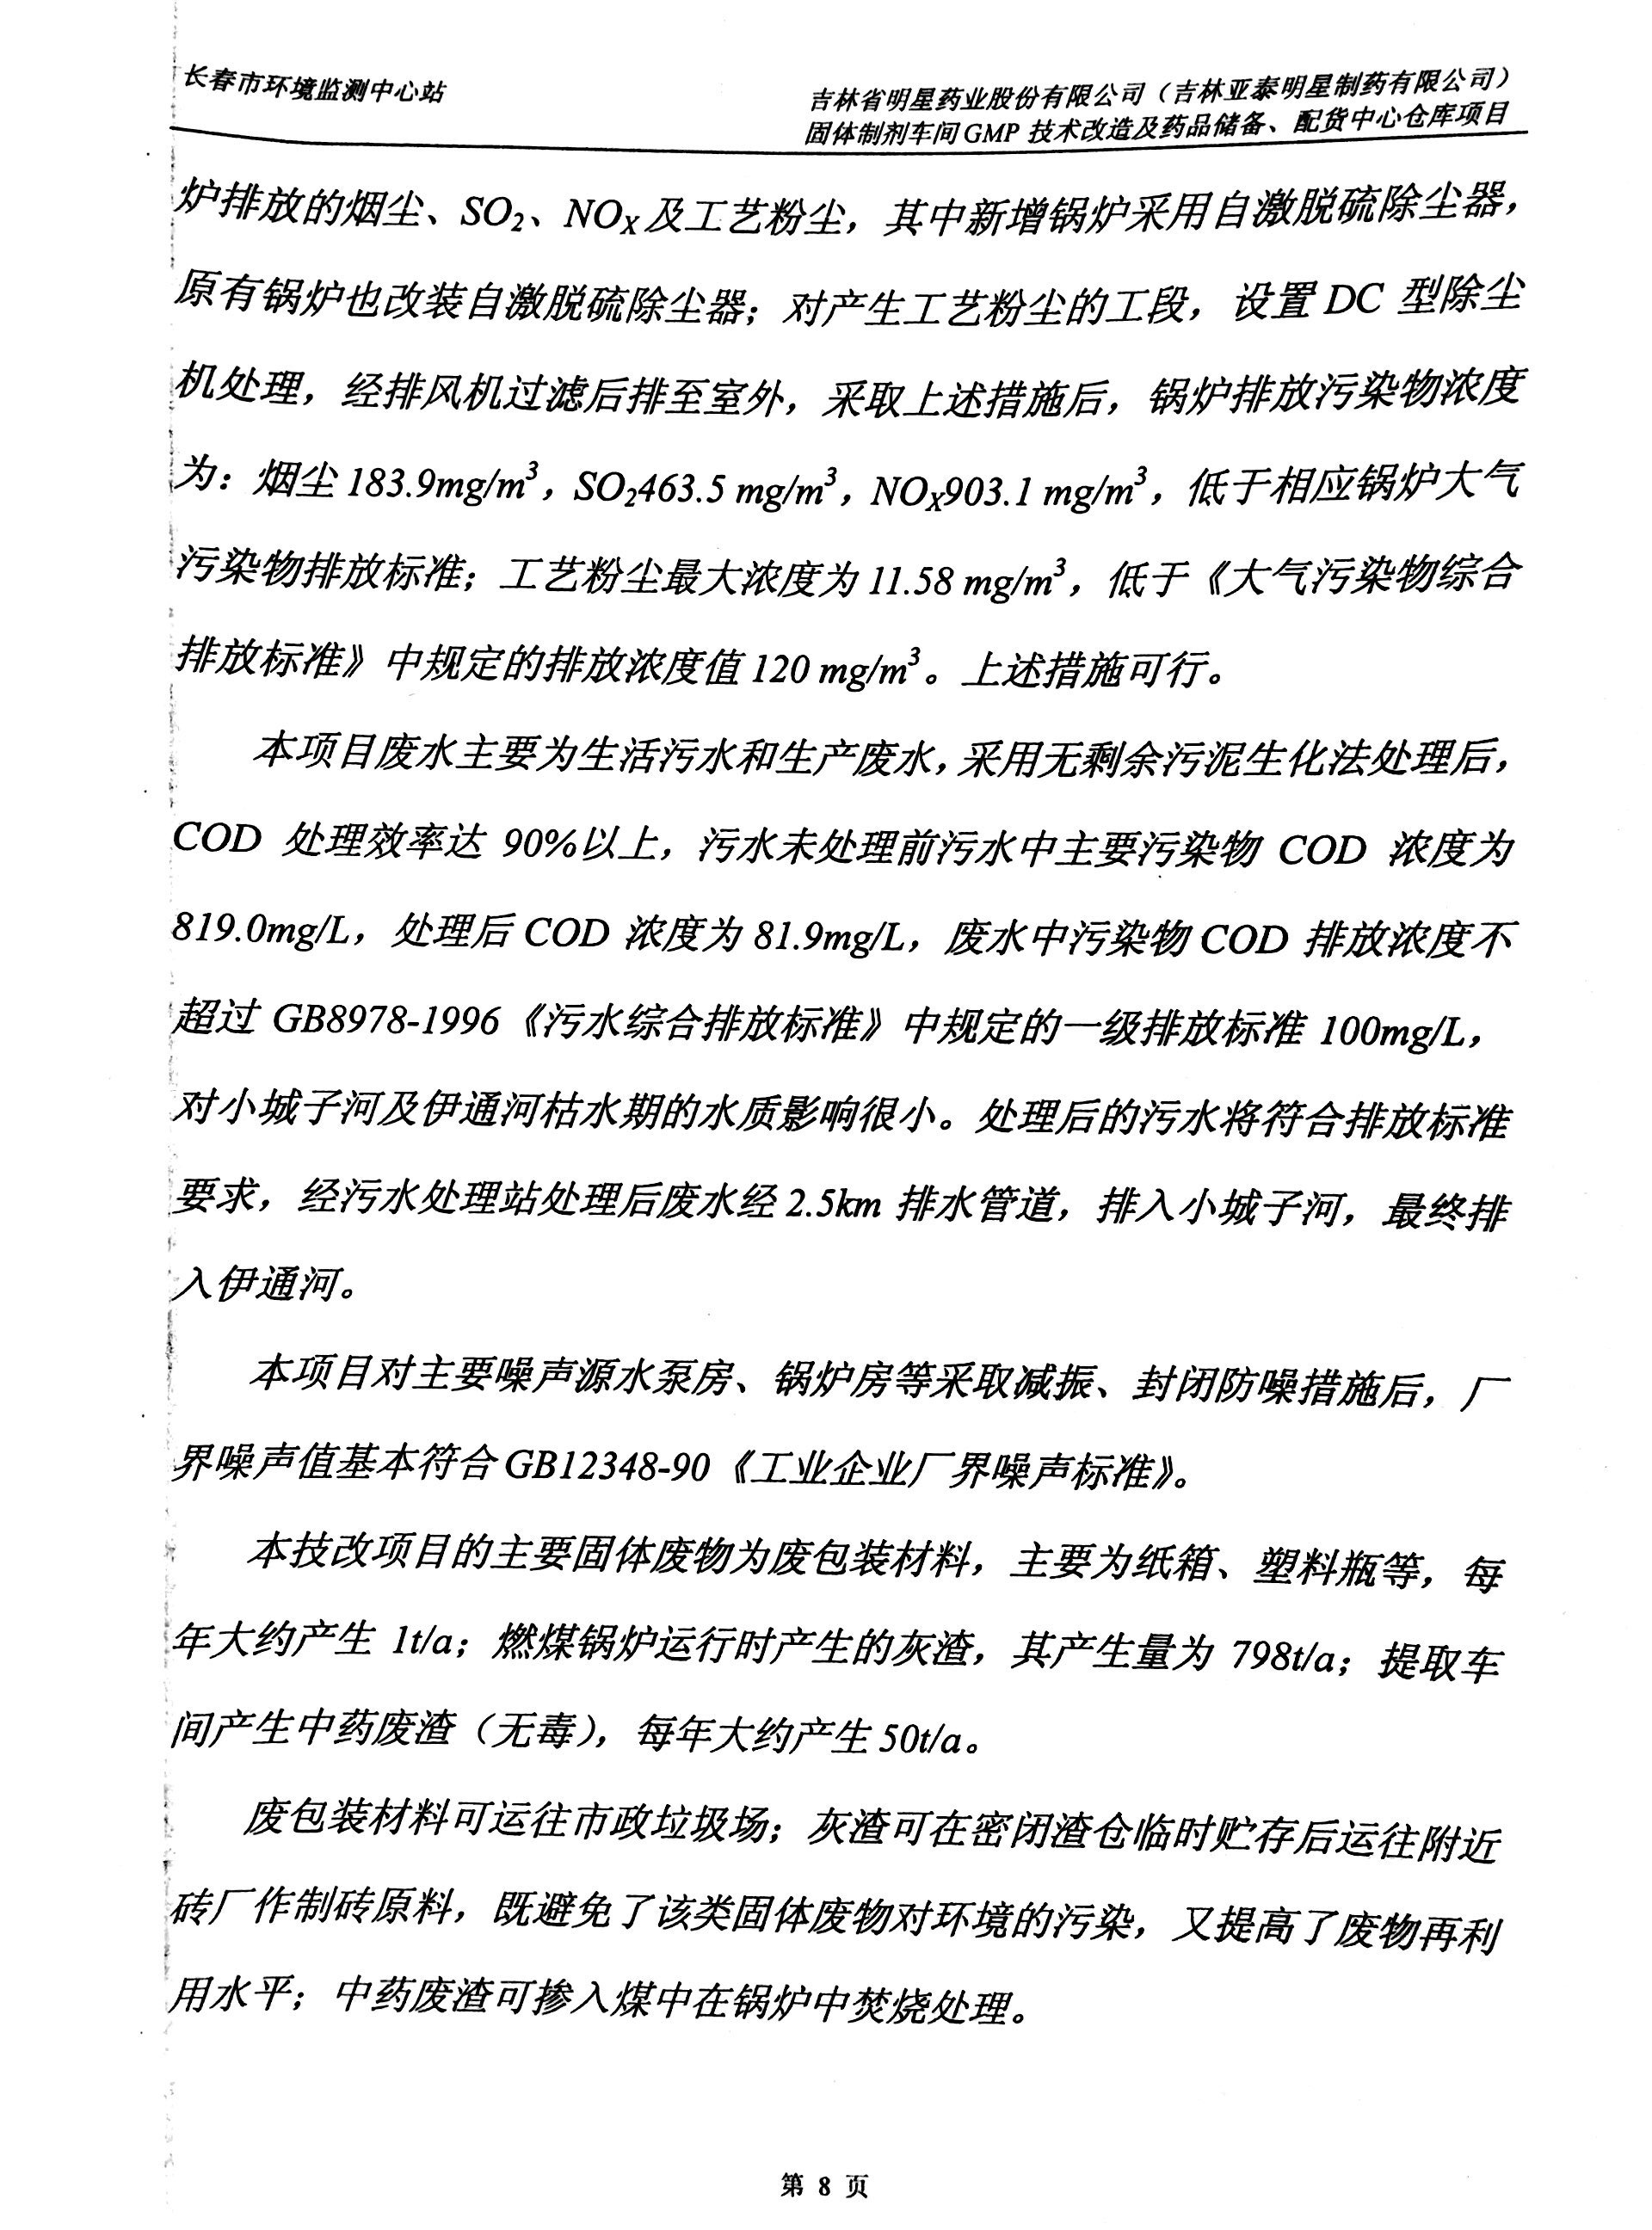 长春市环境监测中心站
吉林省明星药业股份有限公司（吉林亚泰明星制药有限公司）
固体制剂车间GMP 技术改造及药品储备、配货中心仓库项目
炉排放的烟尘、SO₂、NOX及工艺粉尘，其中新增锅炉采用自激脱硫除尘器，
原有锅炉也改装自激脱硫除尘器；对产生工艺粉尘的工段，设置 DC 型除尘
机处理，经排风机过滤后排至室外，采取上述措施后，锅炉排放污染物浓度
为：烟尘 183.9mg/m³，SO₂463.5 mg/m³，NOX903.1 mg/m³，低于相应锅炉大气
污染物排放标准；工艺粉尘最大浓度为 11.58 mg/m³，低于《大气污染物综合
排放标准》中规定的排放浓度值 120 mg/m³。上述措施可行。
本项目废水主要为生活污水和生产废水，采用无剩余污泥生化法处理后，
COD 处理效率达 90%以上，污水未处理前污水中主要污染物 COD 浓度为
819.0mg/L，处理后 COD 浓度为 81.9mg/L，废水中污染物 COD 排放浓度不
超过 GB8978-1996《污水综合排放标准》中规定的一级排放标准 100mg/L，
对小城子河及伊通河枯水期的水质影响很小。处理后的污水将符合排放标准
要求，经污水处理站处理后废水经 2.5km 排水管道，排入小城子河，最终排
入伊通河。
本项目对主要噪声源水泵房、锅炉房等采取减振、封闭防噪措施后，厂
界噪声值基本符合 GB12348-90《工业企业厂界噪声标准》。
本技改项目的主要固体废物为废包装材料，主要为纸箱、塑料瓶等，每
年大约产生 1t/a；燃煤锅炉运行时产生的灰渣，其产生量为 798t/a；提取车
间产生中药废渣（无毒），每年大约产生 50t/a。
废包装材料可运往市政垃圾场；灰渣可在密闭渣仓临时贮存后运往附近
砖厂作制砖原料，既避免了该类固体废物对环境的污染，又提高了废物再利
用水平；中药废渣可掺入煤中在锅炉中焚烧处理。
第 8 页